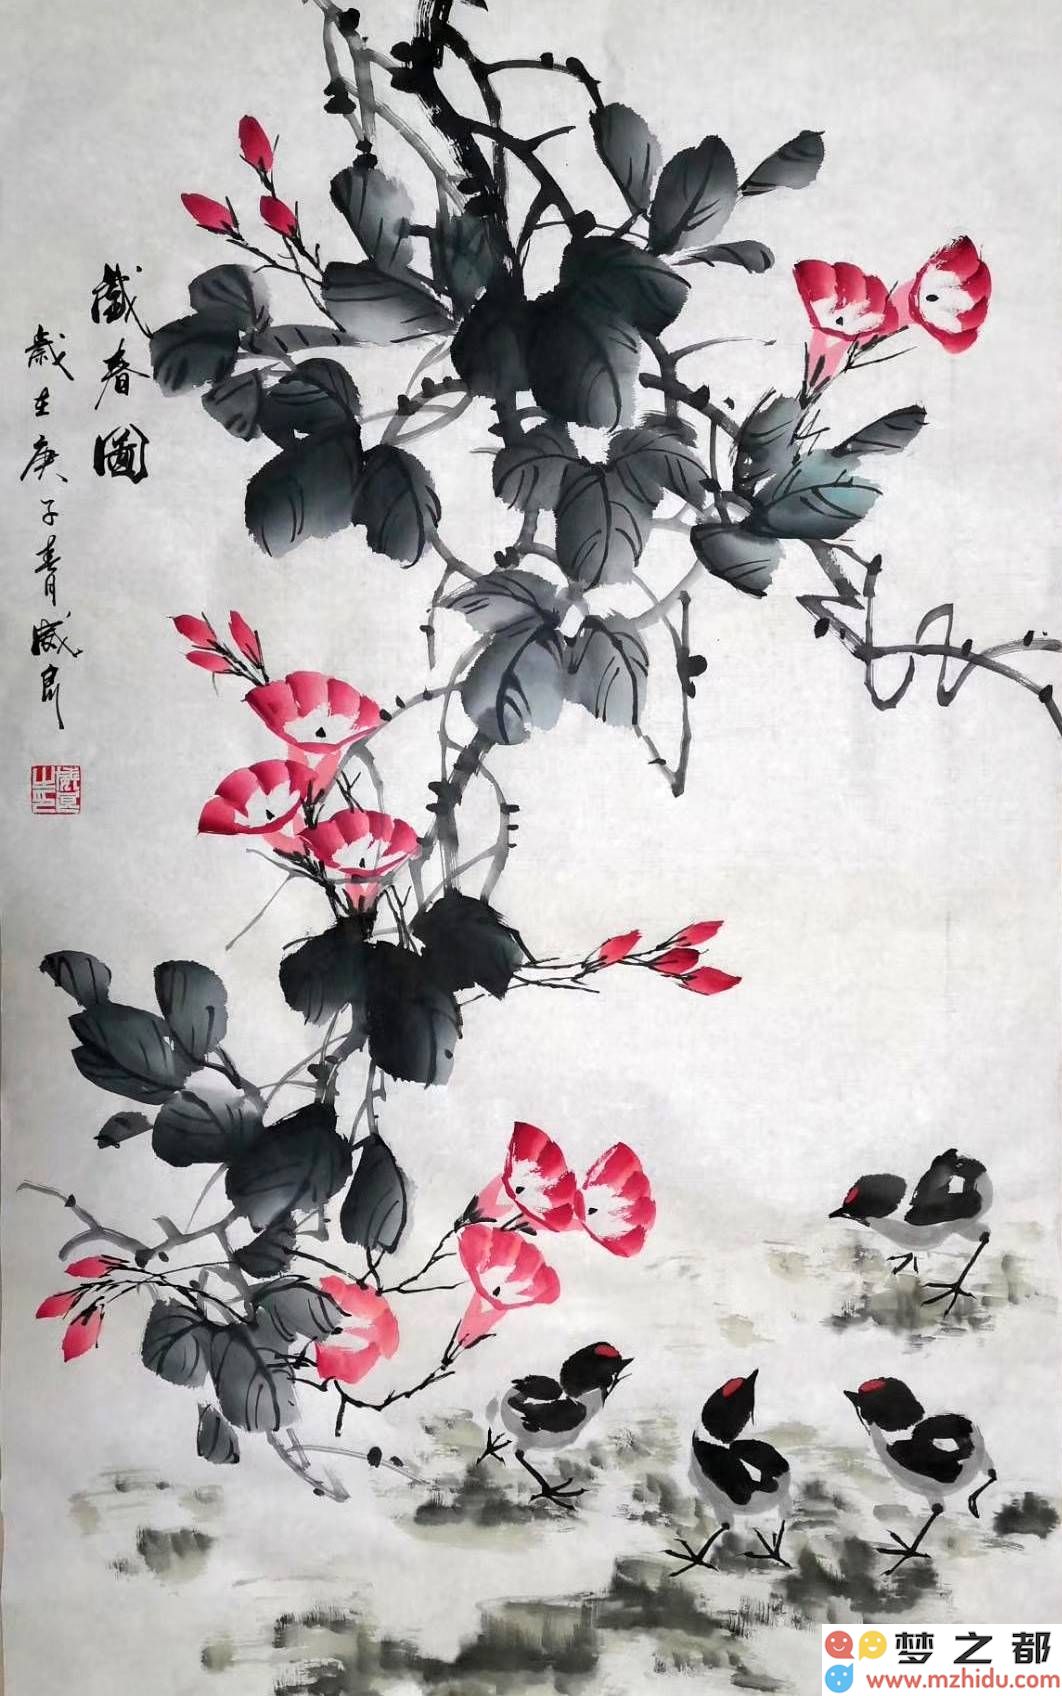 戲春圖
歲在庚子春月威良
梦之都
www.mzhidu.com